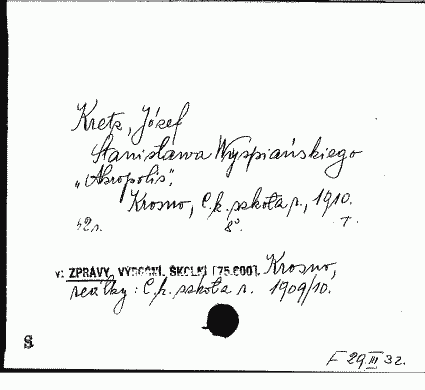 Kretz, Józef
Stanisława Wyspiańskiego
„Akropolis“.
Krosno, C. k. szkoła r., 1910.
42 s. 8°. T.
v: ZPRÁVY, VÝROČNÍ. ŠKOLNÍ [75.600]. Krosno,
reálky: C. k. szkoła r. 1909/10.
S
F 29 III 32.